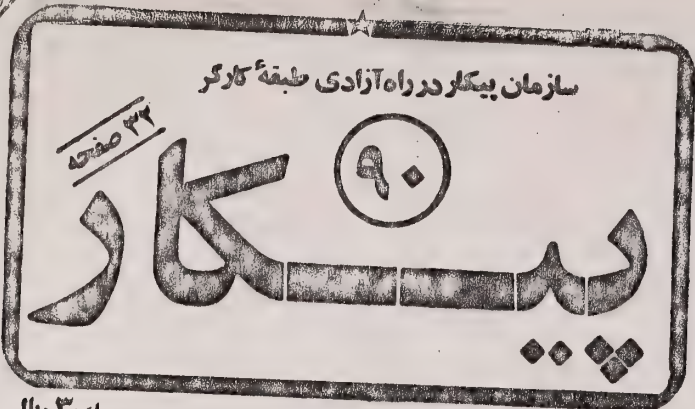 سازمان پیکار در راه آزادی طبقهٔ کارگر
۳۲ صفحه
۹۰
پیکار
۳ ریال